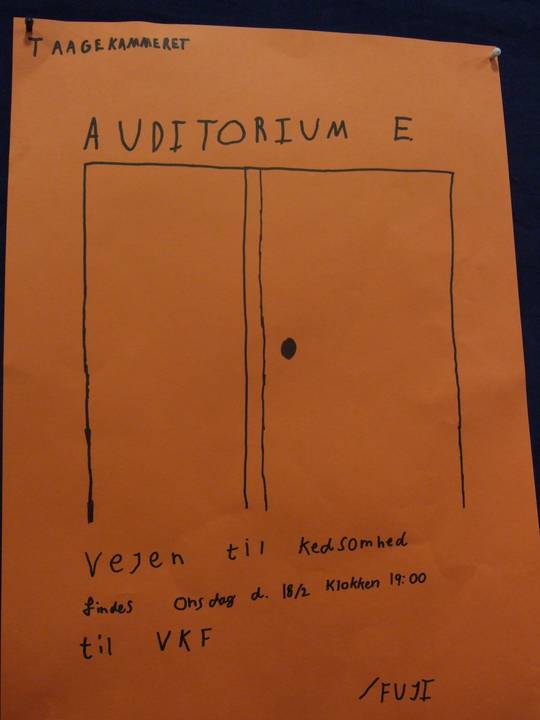 TAAGEKAMMERET
AUDITORIUM E
Vejen til kedsomhed
findes Onsdag d. 18/2 Klokken 19:00
til VKF
/FUJI